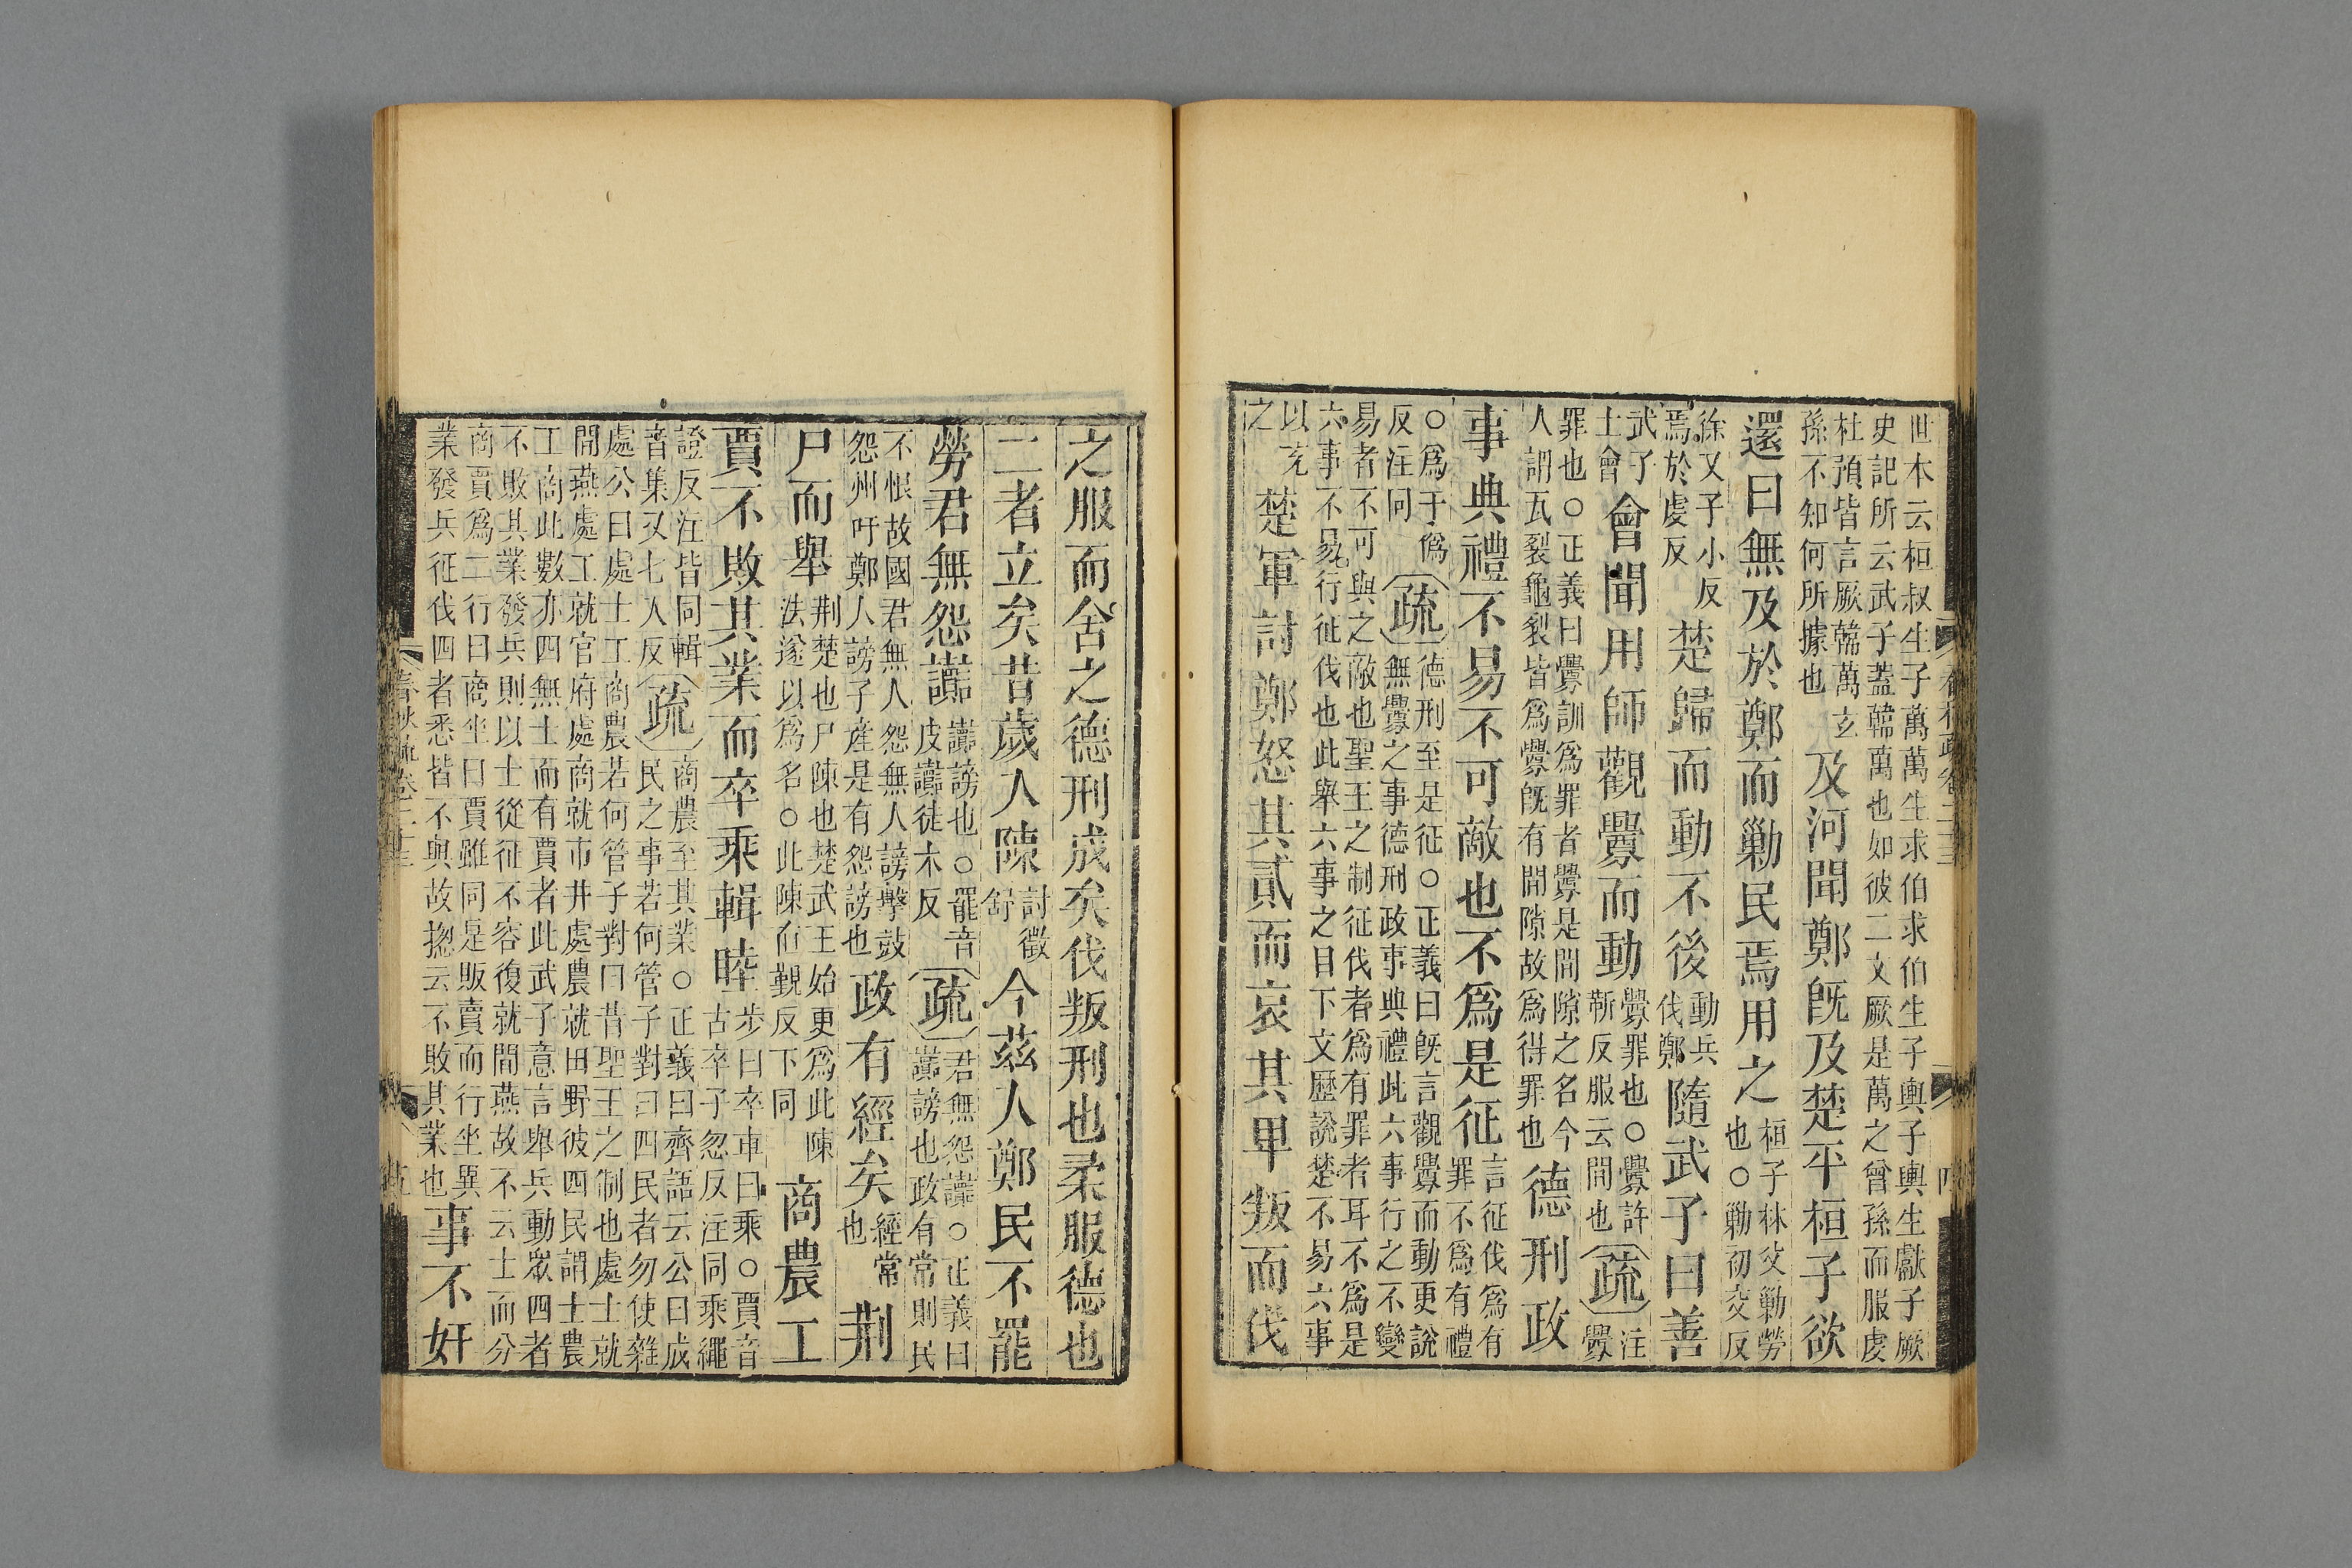 世本云桓叔生子萬萬生求伯求伯生子輿子輿生獻子厥
史記所云武子蓋韓萬也如彼二文厥是萬之曾孫而服虔
杜預皆言厥韓萬玄
孫不知何所據也
及河聞鄭既及楚平桓子欲
還曰無及於鄭而勦民焉用之
桓子林父勦勞
也○勦初交反
徐又子小反
焉於虔反
楚歸而動不後
動兵
伐鄭
隨武子曰善
武子
士會
會聞用師觀釁而動
釁罪也○釁許
靳反服云間也
疏
注
釁
罪也○正義曰釁訓爲罪者釁是間隙之名今
人謂瓦裂龜裂皆爲釁旣有間隙故爲得罪也
德刑政
事典禮不易不可敵也不爲是征
言征伐爲有
罪不爲有禮
○爲于僞
反注同
疏
德刑至是征○正義曰旣言觀釁而動更說
無釁之事德刑政事典禮此六事行之不變
易者不可與之敵也聖王之制征伐者爲有罪者耳不爲是
六事不易行征伐也此舉六事之目下文歷說楚不易六事
以充
之
楚軍討鄭怒其貳而哀其卑叛而伐
之服而舍之德刑成矣伐叛刑也柔服德也
二者立矣昔歲入陳
討徵
舒
今茲入鄭民不罷
勞君無怨讟
讟謗也○罷音
皮讟徒木反
疏
君無怨讟○正義曰
讟謗也政有常則民
不恨故國君無人怨無人謗擊鼓
怨州吁鄭人謗子產是有怨謗也
政有經矣
經常
也
荆
尸而舉
荆楚也尸陳也楚武王始更爲此陳
法遂以爲名○此陳直覲反下同
商農工
賈不敗其業而卒乘輯睦
步曰卒車曰乘○賈音
古卒子忽反注同乘繩
證反注皆同輯
音集又七入反
疏
商農至其業○正義曰齊語云公曰成
民之事若何管子對曰四民者勿使雜
處公曰處士工商農若何管子對曰昔聖王之制也處士就
閒燕處工就官府處商就市井處農就田野彼四民謂士農
工商此數亦四無士而有賈者此武子意言舉兵動眾四者
不敗其業發兵則以士從征不容復就閒燕故不云士而分
商賈爲二行曰商坐曰賈雖同是販賣而行坐異
業發兵征伐四者悉皆不與故揔云不敗其業也
事不奸
春秋疏卷二十三
五